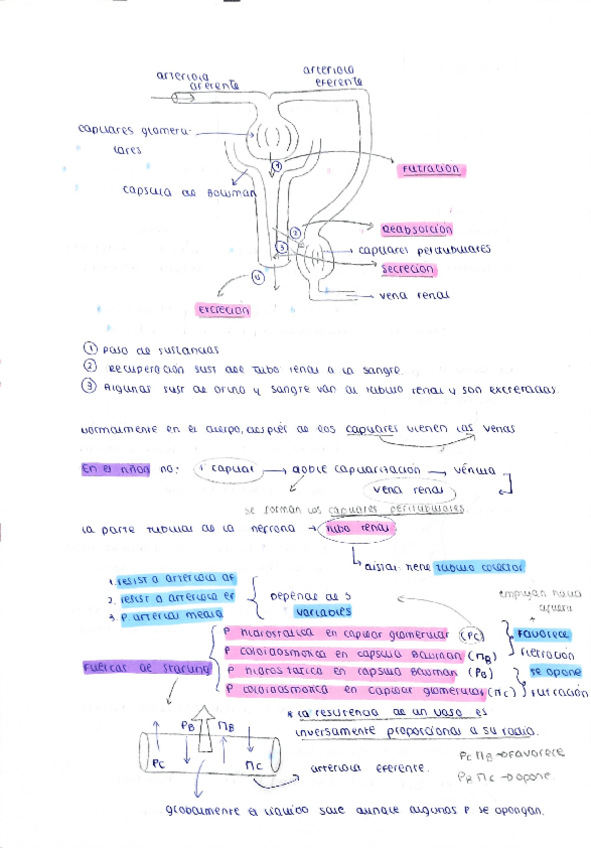 arteriola aferente
arteriola eferente
capilares glomeru-
lares
capsula de Bowman
1
Filtración
2
Reabsorción
3
capilares peritubulares
secreción
4
vena renal
excreción
1 Paso de sustancias
2 Recuperación sust del tubo renal a la sangre.
3 Algunas sust de orina y sangre van al túbulo renal y son excretadas.
Normalmente en el cuerpo, después de los capilares vienen las venas
En el riñón no: 1 capilar → doble capilarización → vénula
vena renal
se forman los capilares peritubulares
La parte tubular de la nefrona → tubo renal
distal: tiene tubulo colector
1. resist a arteriola af
2. resist a arteriola ef
3. P arterial media
Depende de 3
variables
empujan hacia
afuera
Fuerzas de starling
P hidrostatica en capilar glomerular (Pc)
P coloidosmotica en capsula Bowman (πB)
P hidrostatica en capsula Bowman (PB)
P coloidosmotica en capilar glomerular (πc)
Favorece
filtración
se opone
filtración
* La resistencia de un vaso es
inversamente proporcional a su radio.
PB πB
Pc πc
arteriola eferente.
Pc πB → favorece
PB πc → opone
globalmente el líquido sale aunque algunos P se opongan.